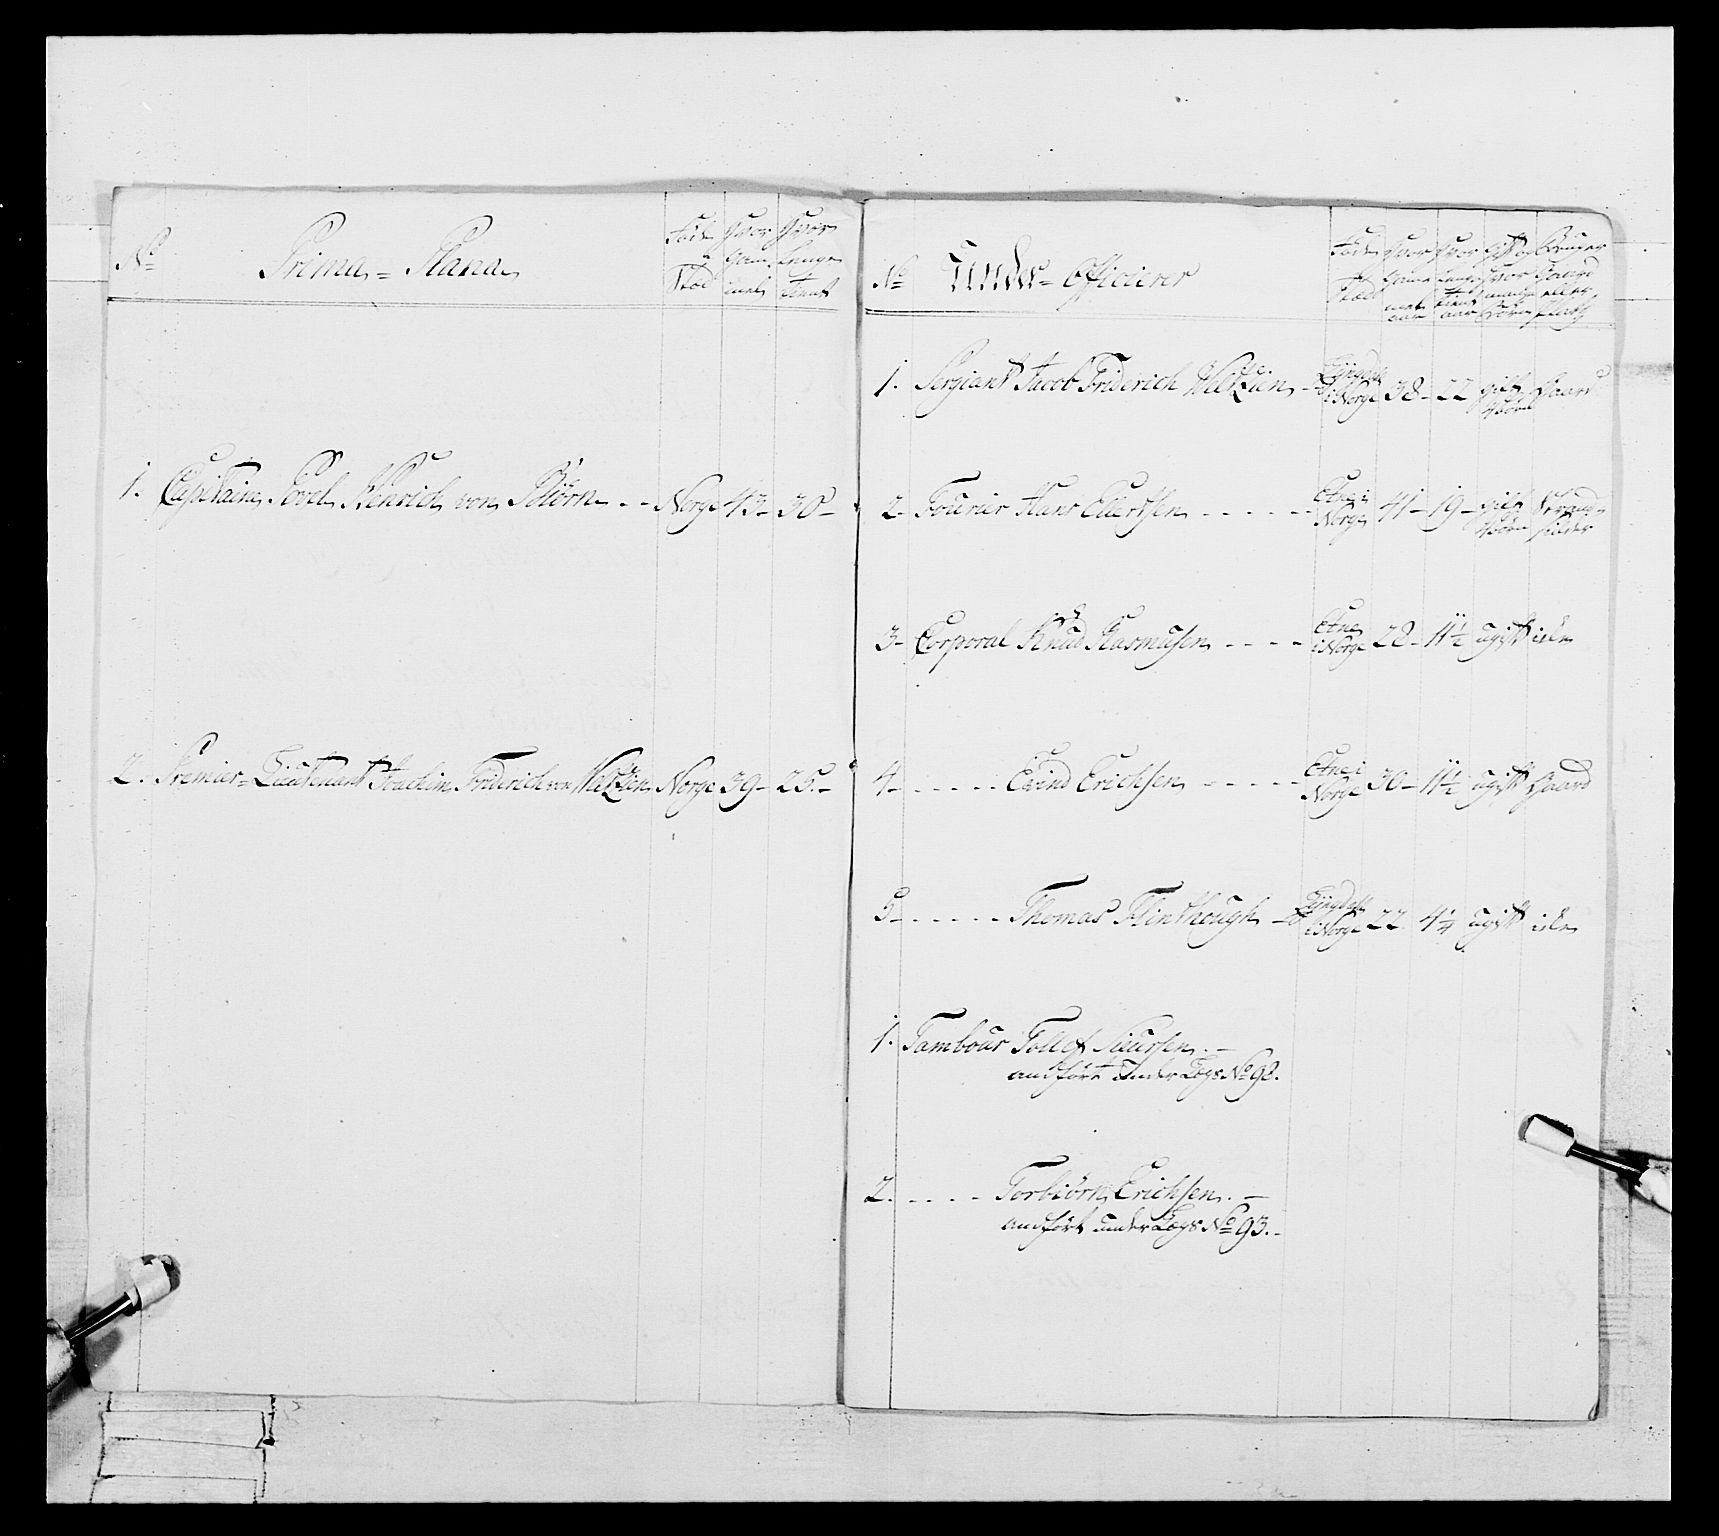 No
Prima-Plana
Føde
Stæd
Hvor
Gam-
mel
Hvor
Længe
tient
1. Capitaine Povel Henrich von Biörn -- Norge 43- 30-
2. Premier-Lieutenant Joachim Friderich von Weltzien Norge 39- 25.-
No
Under-Officierer
Føde
Stæd
Hvor
Gam-
mel
aar
Hvor
Længe
tient
aar
gift og
hvor
mange
Børn
Bruger
Gaard
eller
Platz
1. Sergiant Jacob Friderich Weltzien - i Norge 38- 22 gift Gaard
2- Fourier Hans Evertsen ------ Etne i Norge 41- 19- gift Strand-
sidder
3- Corporal Knud Rasmusen ---- Etne i Norge 28- 11½ ugift inden
4------ Evind Erichsen ----- Etne i Norge 30- 11½ ugift Gaard
5------ Thomas Flinthough - i Norge 22 4¼ ugift inden
1. Tambour Tollef Siursen.-
andført under Legs No 98.
2.---- Torbiörn Erichsen.-
andført under Legs No 93.-